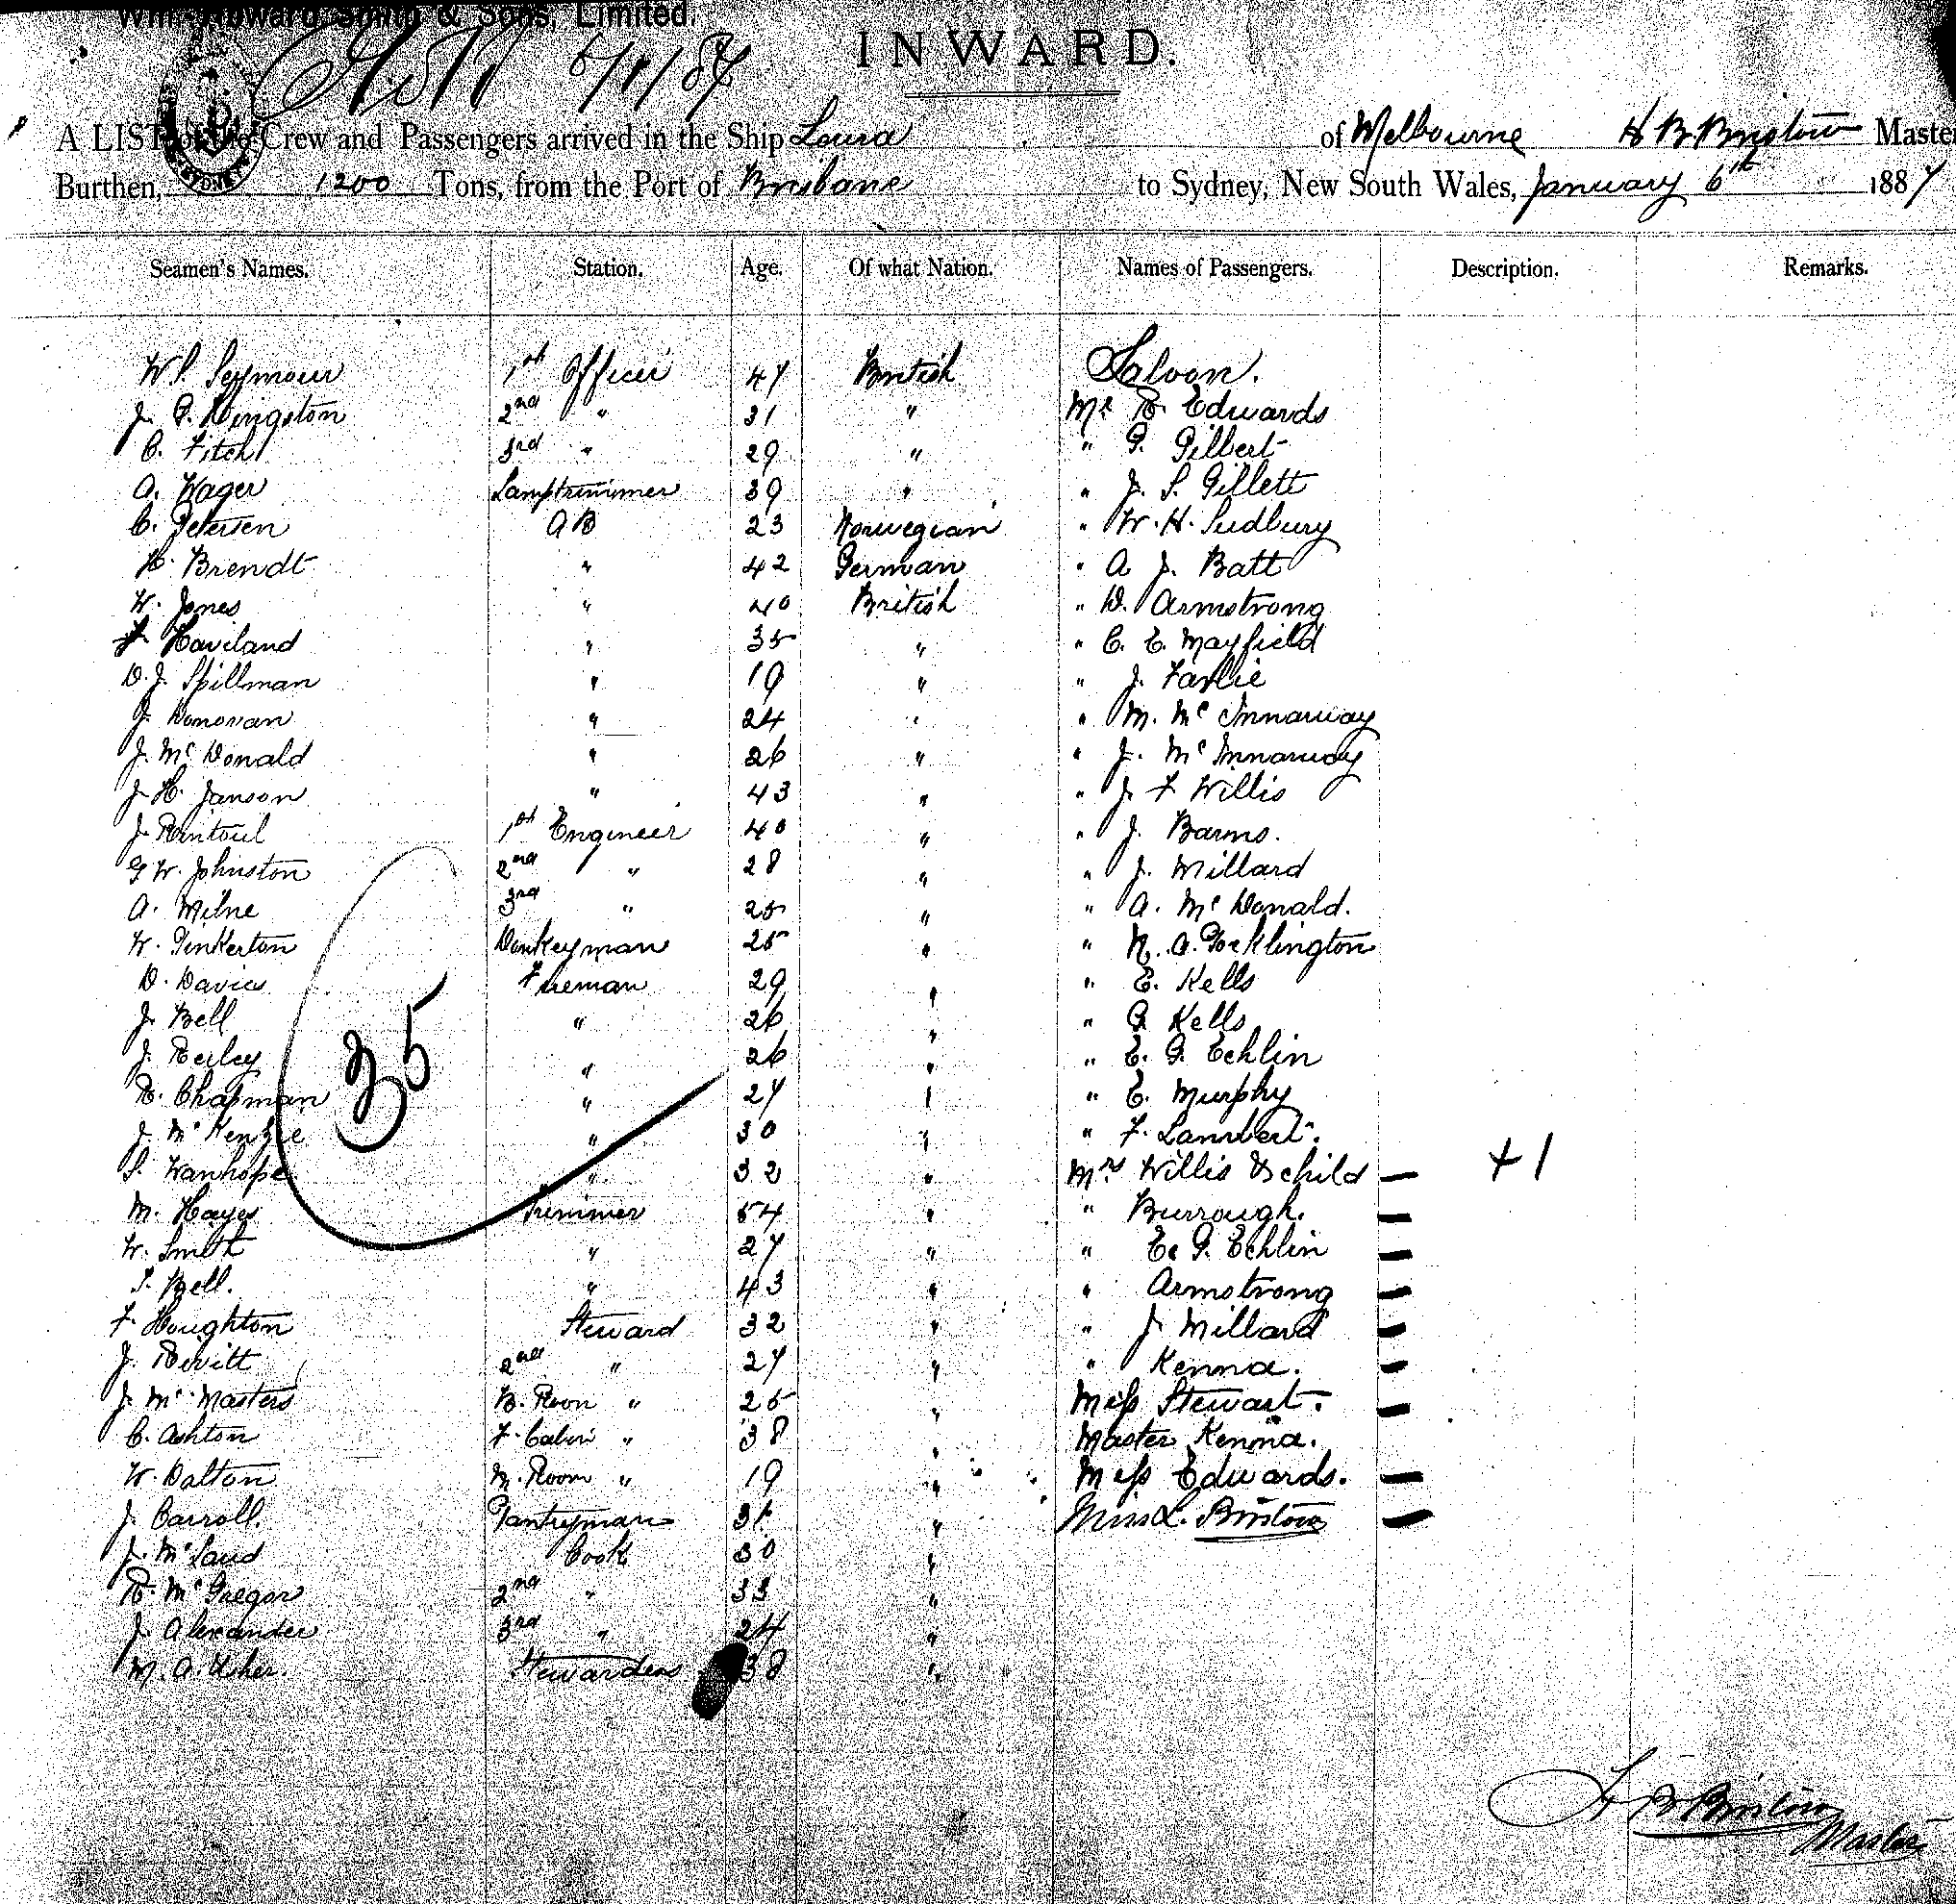 Wm. Howard Smith & Sons, Limited.
6/1/87
INWARD.
A LIST of the Crew and Passengers arrived in the Ship Loura of Melbourne H B Bristow Master
Burthen, 1200 Tons, from the Port of Brisbane to Sydney, New South Wales, January 6th 1887
Seamen's Names. Station. Age. Of what Nation. Names of Passengers. Description. Remarks.
Saloon.
W S. Seymour 1st Officer 47 British
J. G. Kingston 2nd " 31 " Mr R. Edwards
C. Fitch 3rd " 29 " " G. Gilbert
A. Wager Lamptrimmer 39 " " J. S. Gillett
C. Petersen AB 23 Norwegian " W. H. Sudbury
H. Brendt " 42 German " A J. Batt
W. Jones " 40 British " D. Armstrong
J. Haviland " 35 " " C. E. Mayfield
D. J. Spillman " 19 " " J. Farlie
J. Donovan " 24 " " M. Mc Innarway
J. Mc Donald " 26 " " J. Mc Innarway
J. H. Janson " 43 " " J F Willis
J Rintoul 1st Engineer 40 " " J. Barms.
G W. Johnston 2nd " 28 " " J. Millard
A. Milne 3rd " 25 " " A. Mc Donald.
W. Pinkerton Donkeyman 25 " " N. A. Pocklington
D. Davies Fireman 29 " " E. Kells
J. Bell " 26 " " G Kells
J. Rerley " 26 " " E. G. Echlin
R. Chapman " 27 " " E. Murphy
J. Mc Kenzie " 30 " " F. Lambert.
S. Wanhope " 32 " Mrs Willis & child +1
M. Hayes Trimmer 54 " " Burrough.
W. Smith " 27 " " E. G. Echlin
S. Bell. " 43 " " Armstrong
F. Houghton Steward 32 " " J Millard
J. Revitt 2nd " 27 " " Kenna.
J. Mc Masters B. Room " 25 " Miss Stewart.
C. Ashton F. Cabin " 38 " Master Kenna.
W. Dalton M. Room " 19 " Miss Edwards.
J. Carroll. Pantryman 31 " Miss L. Bristow
J. Mc Laud Cook 30 "
R. Mc Gregor 2nd " 33 "
J. Alexander 3rd " 24 "
M. A. Usher. Stewardess 38 "
35
H B Bristow
Master